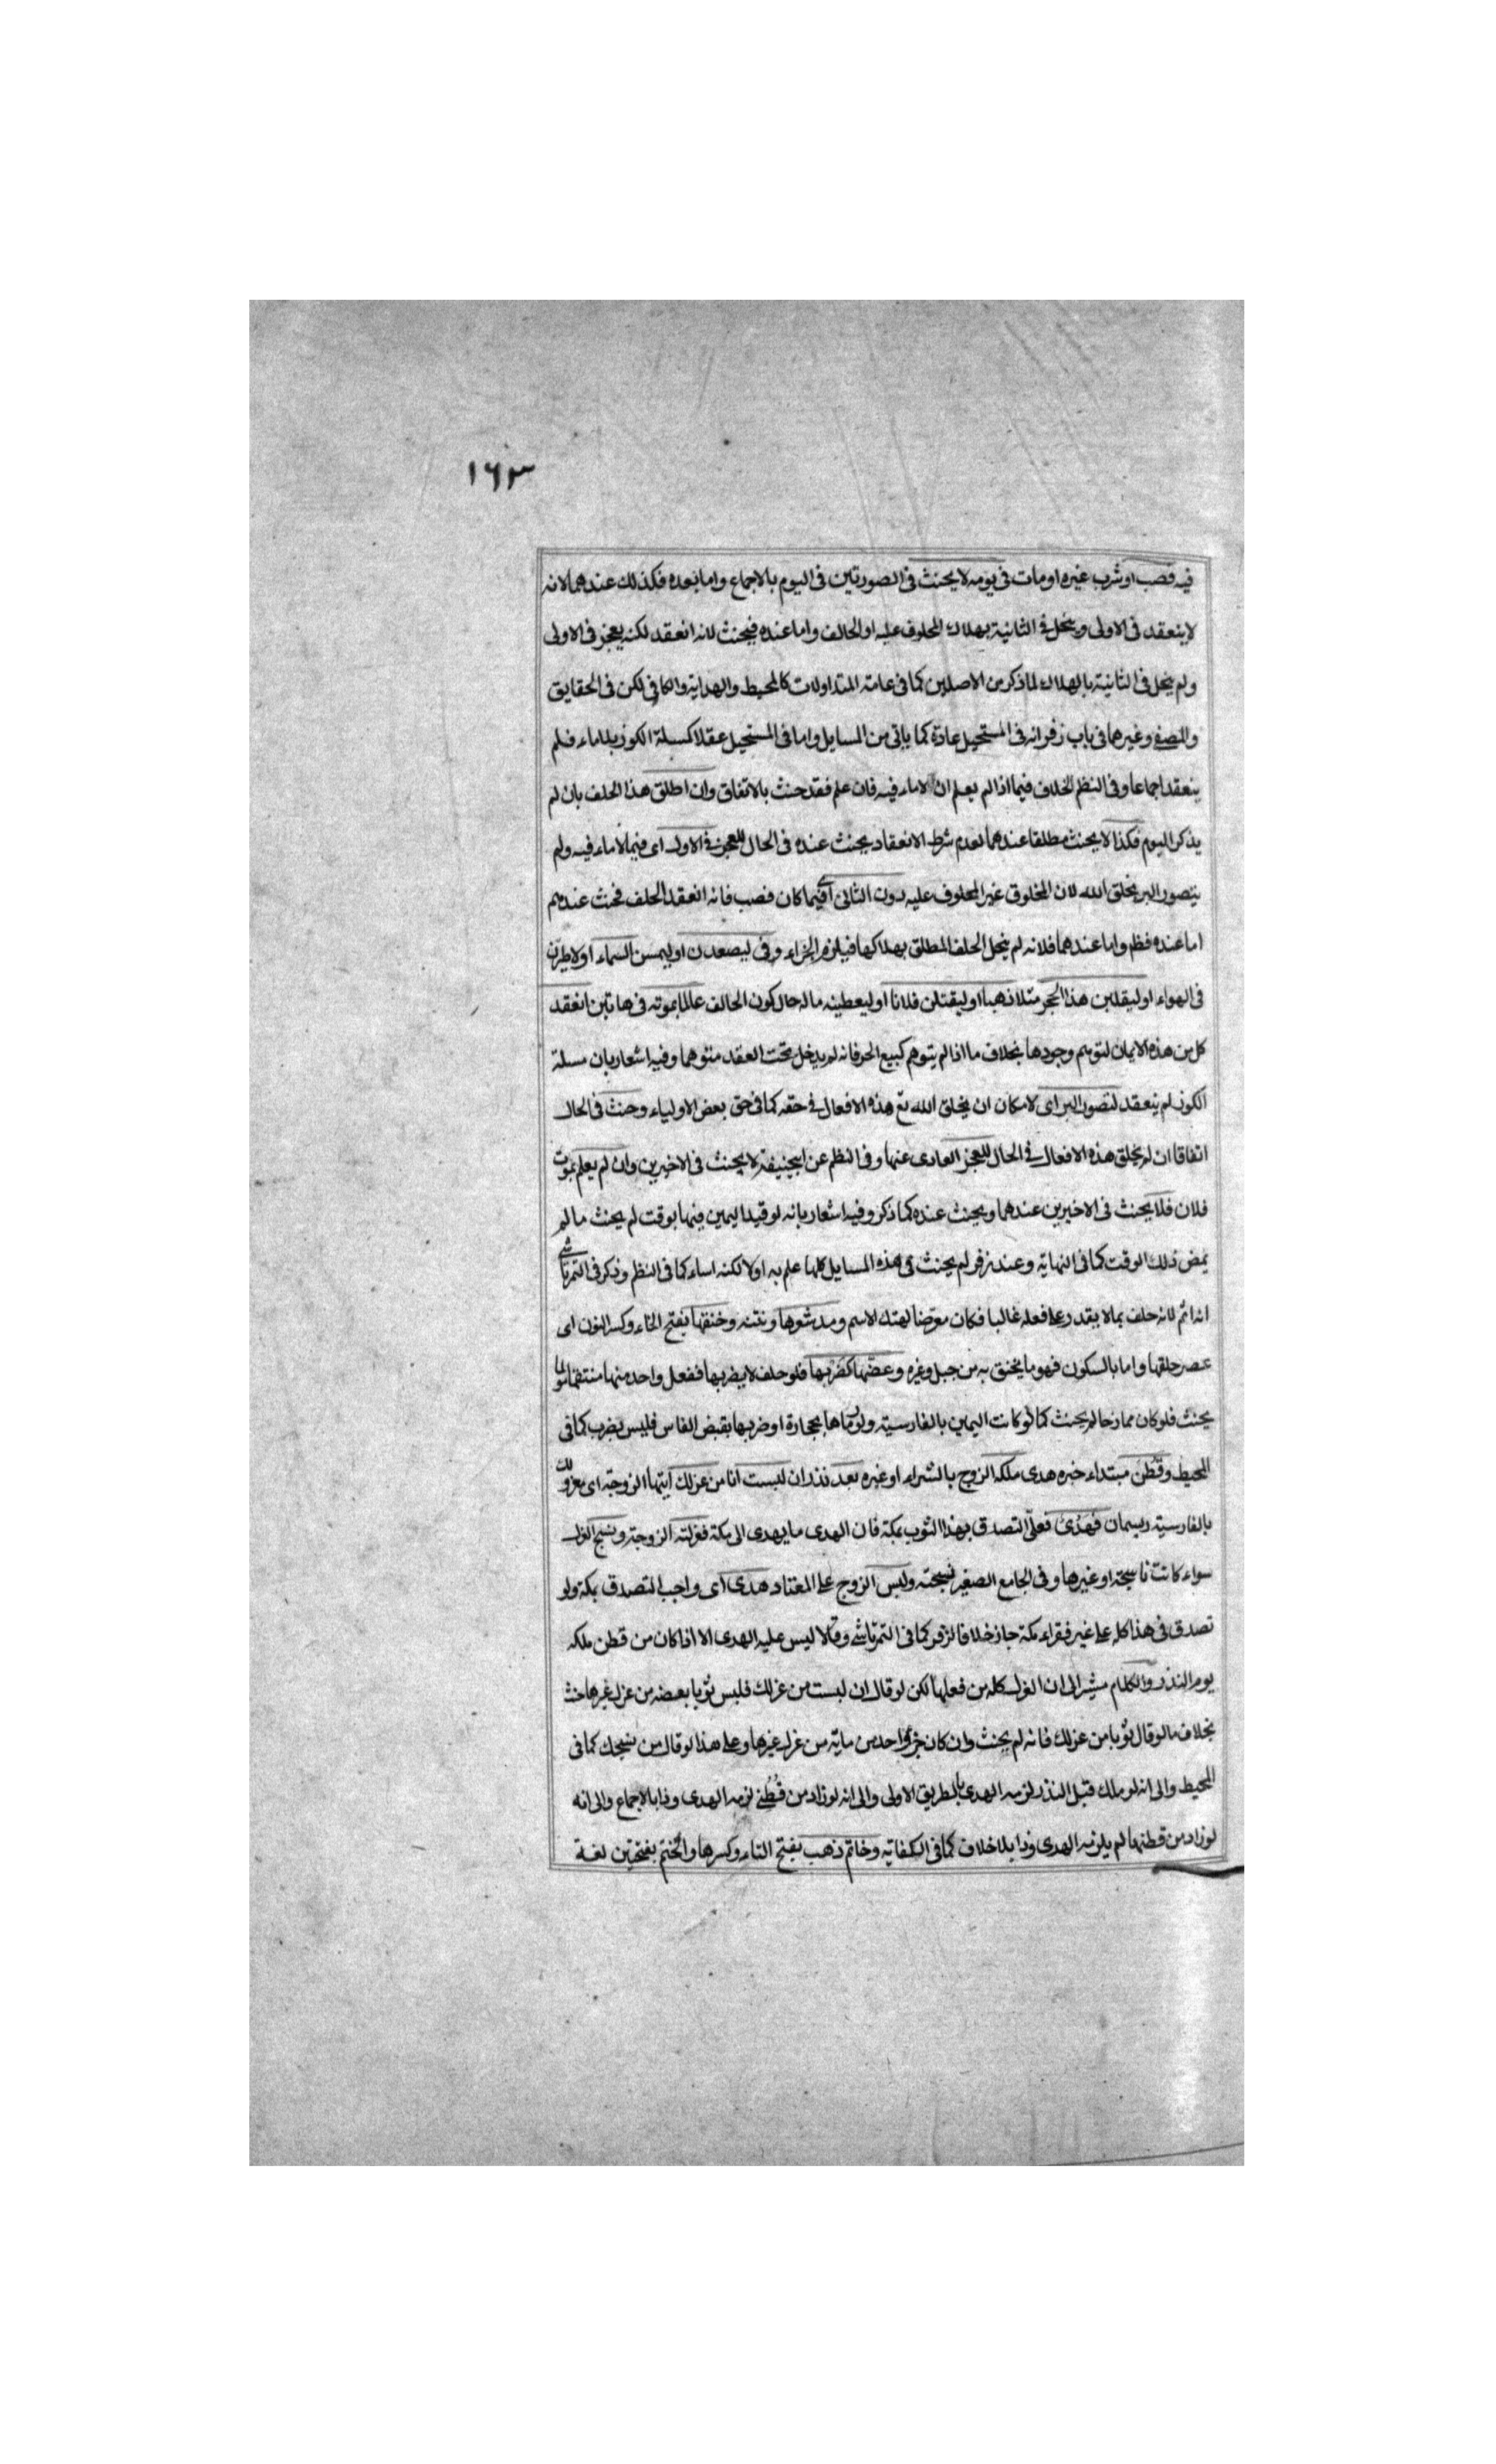 ١٦٣
فيه فصب او شرب غيره او مات فى يومه لا يحنث فى الصورتين فى اليوم بالاجماع واما بعده فكذلك عندهما لانه
لا ينعقد فى الاولى وينحل فى الثانية بهلاك المحلوف عليه او الحالف واما عنده فيحنث لانه انعقد لكنه يعجز فى الاولى
ولم ينحل فى الثانية بالهلاك لما ذكر من الاصلين كما فى عامة المتداولات كالمحيط والهداية والكافى لكن فى الحقايق
والمصفى وغيرها فى باب زفر انه فى المستحيل عادة كما ياتى من المسايل واما فى المستحيل عقلا كمسلة الكوز بلا ماء فلم
ينعقد اجماعا وفى النظم الخلاف فيما اذا لم يعلم ان لا ماء فيه فان علم فقد حنث بالاتفاق وان اطلق هذا الحلف بان لم
يذكر اليوم فكذا لا يحنث مطلقا عندهما لعدم شرط الانعقاد يحنث عنده فى الحال للعجز فى الاول اى فيما لا ماء فيه ولم
يتصور البر بخلق الله لان المخلوق غير المحلوف عليه دون الثانى اى فيما كان فصب فانه انعقد الحلف فحنث عندهم
اما عنده فظم واما عندهما فلانه لم ينحل الحلف المطلق بهلاكها فيلزم الجزاء وفى ليصعدن او ليمسن السماء او لاطيرن
فى الهواء او ليقلبن هذا الحجر مثلا ذهبا او ليقتلن فلانا او ليعطينه ماله حال كون الحالف عالما بموته فى هاتين انعقد
كل من هذه الايمان لتوهم وجودها بخلاف ما اذا لم يتوهم كبيع الحر فانه لم يدخل تحت العقد متوهما وفيه اشعار بان مسلة
الكوز لم ينعقد لتصور البر اى لامكان ان يخلق الله تع هذه الافعال فى حقه كما فى حق بعض الاولياء وحنث فى الحال
اتفاقا ان لم يخلق هذه الافعال فى الحال للعجز العادى عنها وفى النظم عن ابيحنيفة لا يحنث فى الاخيرين وان لم يعلم بموت
فلان فلا يحنث فى الاخيرين عندهما ويحنث عنده كما ذكر وفيه اشعار بانه لو قيد اليمين فيها بوقت لم يحنث ما لم
يمض ذلك الوقت كما فى النهاية وعند زفر لم يحنث فى هذه المسايل كلها علم به اولا لكنه اساء كما فى النظم وذكر فى التمرتاشى
انه اثم لانه حلف بما لا يقدر على فعله غالبا فكان معرّضا لهتك الاسم ومد شعرها ونتفه وخنقها بفتح الخاء وكسر النون اى
عصر حلقها واما بالسكون فهو ما يخنق به من حبل وغيره وعضّها كضربها فلو حلف لا يضربها ففعل واحد منها منتقما
يحنث فلو كان ممازحا لم يحنث كما لو كانت اليمين بالفارسية ولو رماها بحجارة او ضربها بقبض الفاس فليس بضرب كما فى
المحيط وقطن مبتداء خبره هدى ملكه الزوج بالشراء او غيره بعد نذر ان لبست انا من غزلك ايتها الزوجة اى مغزولك
بالفارسية ريسمان فهدى فعلىّ التصدق بهذا الثوب بمكة فان الهدى ما يهدى الى مكة فغزلته الزوجة ونسج الغزل
سواء كانت ناسجة او غيرها وفى الجامع الصغير نسجته ولبس الزوج على المعتاد هدى اى واجب التصدق بمكة ولو
تصدق فى هذا كله على غير فقراء مكة جاز خلافا لزفر كما فى التمرتاشى وقالا ليس عليه الهدى الا اذا كان من قطن ملكه
يوم النذر والكلام مشير الى ان الغزل كله من فعلها لكن لو قال ان لبست من غزلك فلبس ثوبا بعضه من غزل غيرها حنث
بخلاف ما لو قال ثوبا من غزلك فانه لم يحنث وان كان جزء واحد من مايه من غزل غيرها وعلى هذا لو قال من نسجك كما فى
المحيط والى انه لو ملك قبل النذر لزمه الهدى بالطريق الاولى والى انه لو زاد من قُطْنى لزمه الهدى وذا بالاجماع والى انه
لو زاد من قطنها لم يلزمه الهدى وذا بلا خلاف كما فى الكفاية وخاتم ذهب بفتح التاء وكسرها والختم بفتحتين لغة